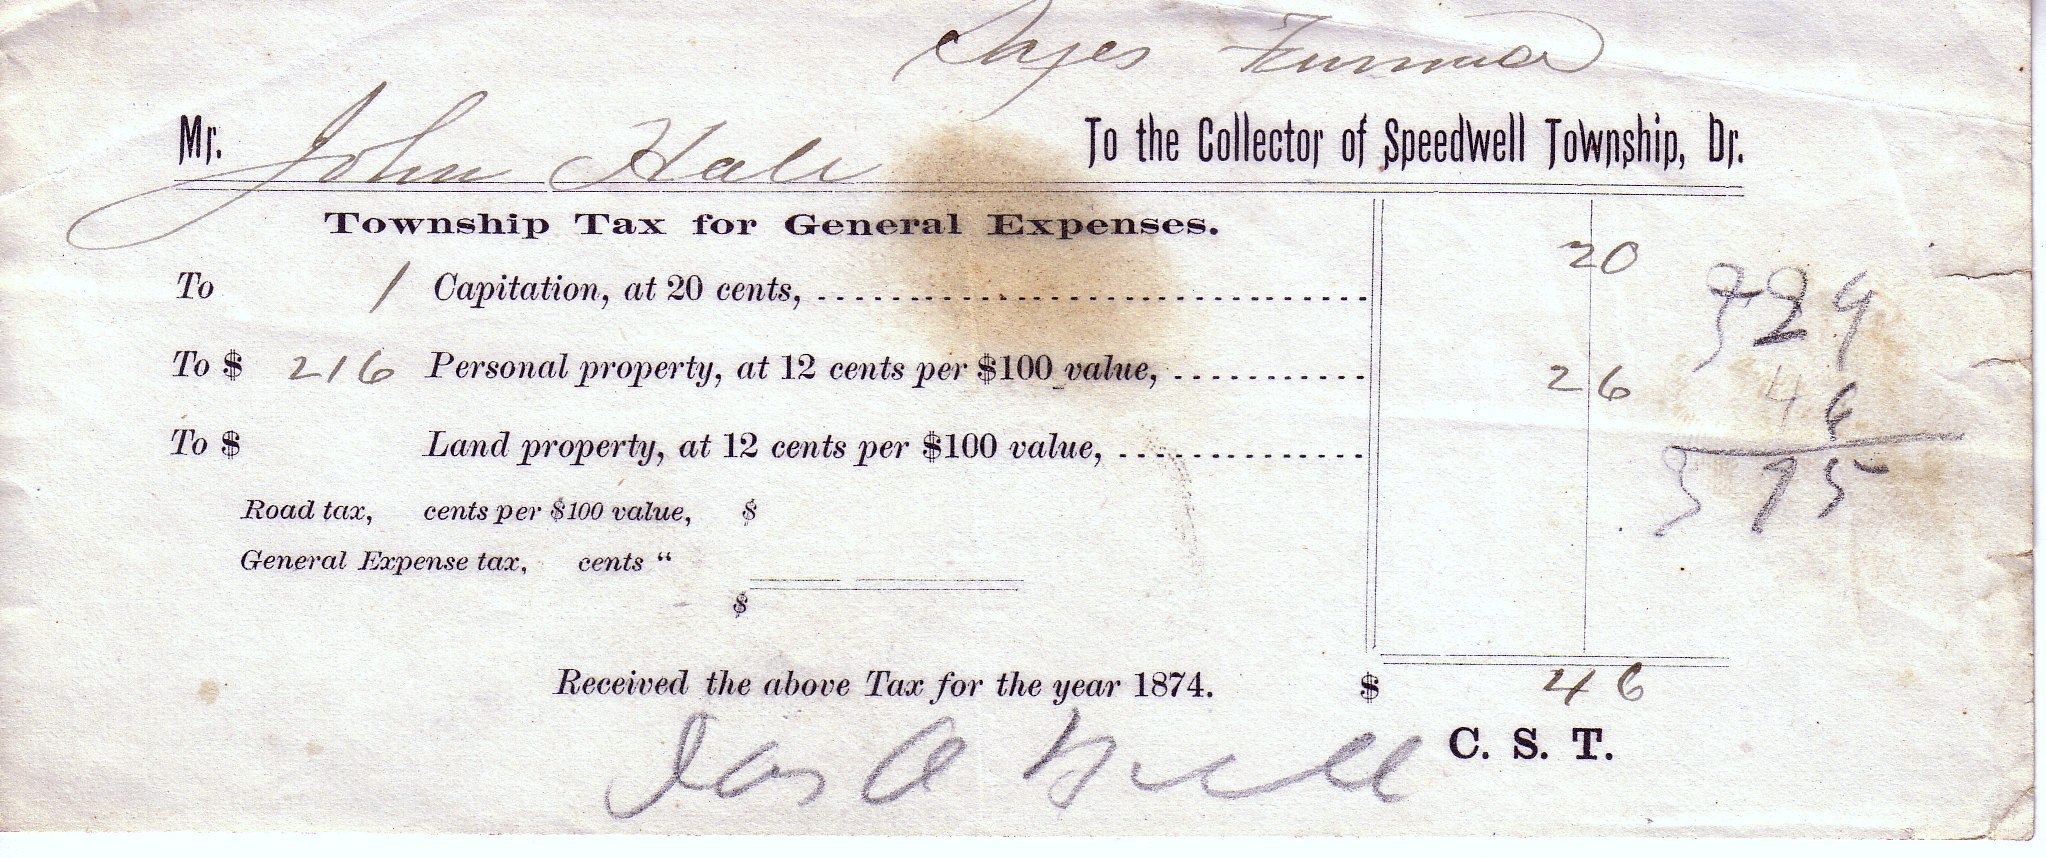 Mr. John Hale To the Collector of Speedwell Township, Dr.
Township Tax for General Expenses.
To 1 Capitation, at 20 cents, 20
To $ 216 Personal property, at 12 cents per $100 value, 26
To $ Land property, at 12 cents per $100 value,
Road tax, cents per $100 value, $
General Expense tax, cents “
$
Received the above Tax for the year 1874. $ 46
C. S. T.
329
46
375